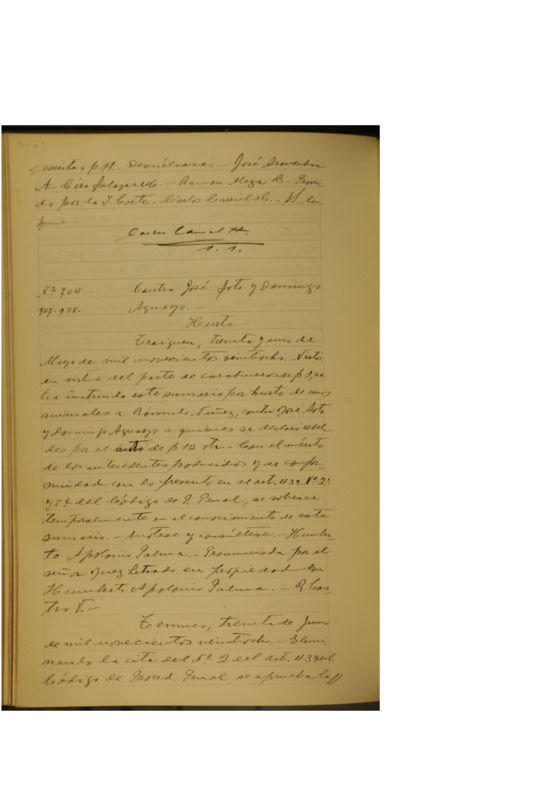 José Aravena
A. - Ciro Salazar M. - Ramon Meza R. - Provei-
do por la I. Corte. - Cárlos Camiel A. - S. Con
forme
Carlos Camiel A
S. S.
Nº 704 - Contra José Soto y Domingo
Aguayo. -
Hurto. -
Traiguen, treinta y uno de
Mayo de mil novecientos veintiocho. - Visto
en virtud del parte de carabineros de f. 1, se
ha instruido este sumario por hurto de unos
animales a Rómulo Nuñez, contra José Soto
y Domingo Aguayo a quienes se declaró rebel
des por el auto de f. 12 vta. - Con el mérito
de los antecedentes producidos y de confor-
midad con lo prescrito en el art. 439, Nº 2º
y 5º del Código de P. Penal, se sobresee
temporalmente en el conocimiento de este
sumario. - Anótese y consúltese. - Humber
to Apolonio Palma. - Pronunciada por el
señor Juez Letrado en propiedad don
Humberto Apolonio Palma. - R. Cas
tro V. -
Temuco, treinta de Junio
de mil novecientos veintiocho. - Elimi
nando la cita del Nº 2 del art. 439 del
Código de Proced. Penal, se aprueba la